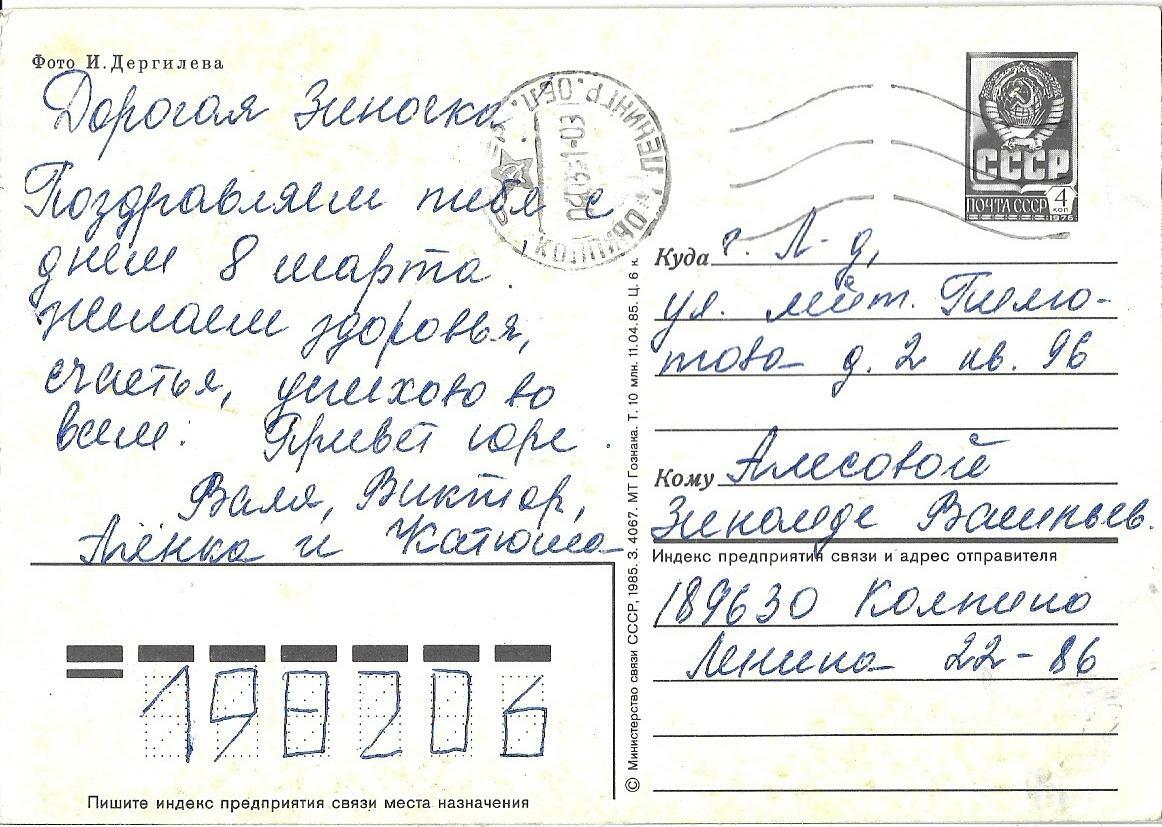 Фото И. Дергилева
Дорогая Зиночка
Поздравляем тебя с
днем 8 марта.
желаем здоровья,
счастья, успехов во
всем. Привет Юре.
Валя, Виктор,
Алёнка и Катюша
198206
Пишите индекс предприятия связи места назначения
© Министерство связи СССР, 1985. З. 4067. МТ Гознака. Т. 10 млн. 11.04.85. Ц. 6 к.
КОЛПИНО ЛЕНИНГР. ОБЛ.
СССР
ПОЧТА СССР 4 КОП
1976
Куда г. Л-д,
ул. лейт. 
д. 2 кв. 96
Кому Алесовой
Зинаиде Васильев.
Индекс предприятия связи и адрес отправителя
189630 Колпино
Ленина 22-86